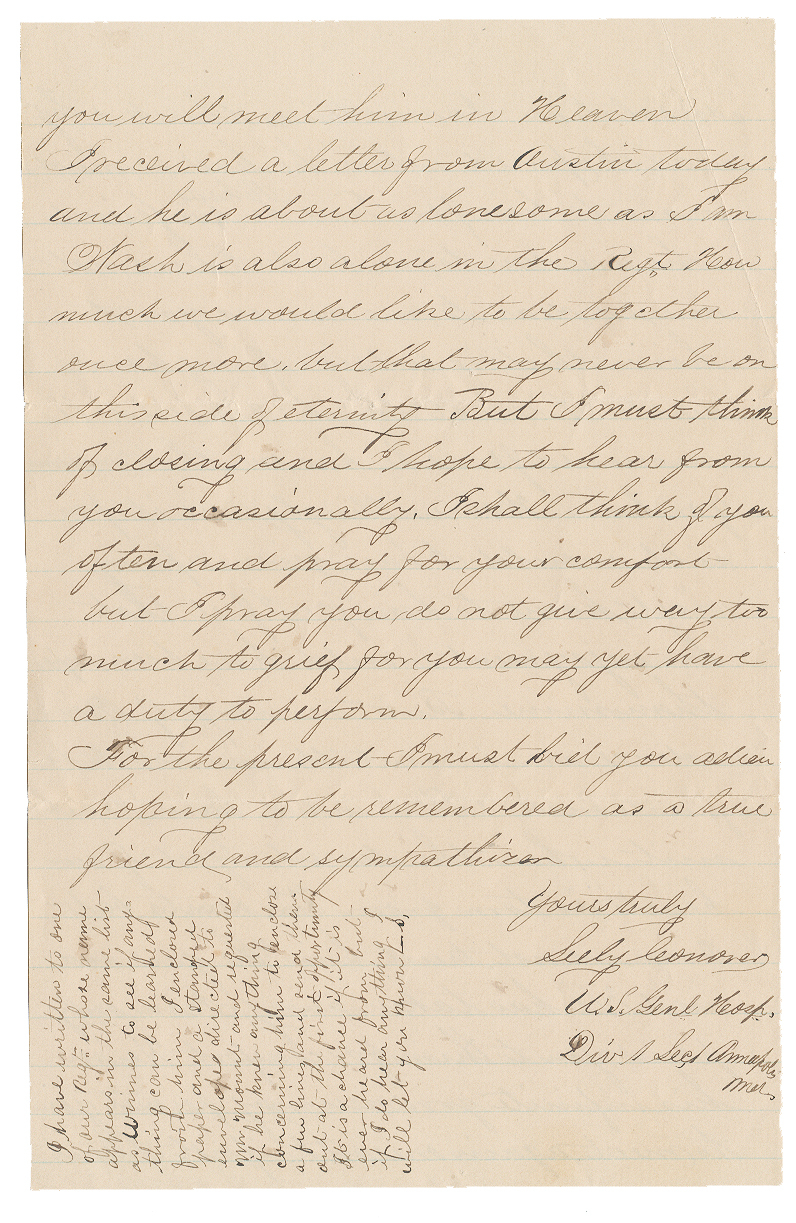 you will meet him in Heaven
I received a letter from Austin today
and he is about as lonesome as I am
Nash is also alone in the Regt. How
much we would like to be together
once more. but that may never be on
this side of eternity But I must think
of closing and I hope to hear from
you occasionally. I shall think of you
often and pray for your comfort
but I pray you do not give way too
much to grief for you may yet have
a duty to perform.
For the present I must bid you adieu
hoping to be remembered as a true
friend and sympathizer
Yours truly
Seely Conover
U. S. Genl Hosp.
Div 1 Sec 1 Annapolis
Md.
I have written to one
of our Regt. whose name
appears in the same list
as Winnes to see if any-
thing can be learned
from him I enclosed
paper and a stamped
envelope directed to
Mr Mount and requested
if he knew anything
concerning him to enclose
a few lines and send them
out at the first opportunity
It is a chance if it is
ever heard from but
if I do hear anything I
will let you know L S,